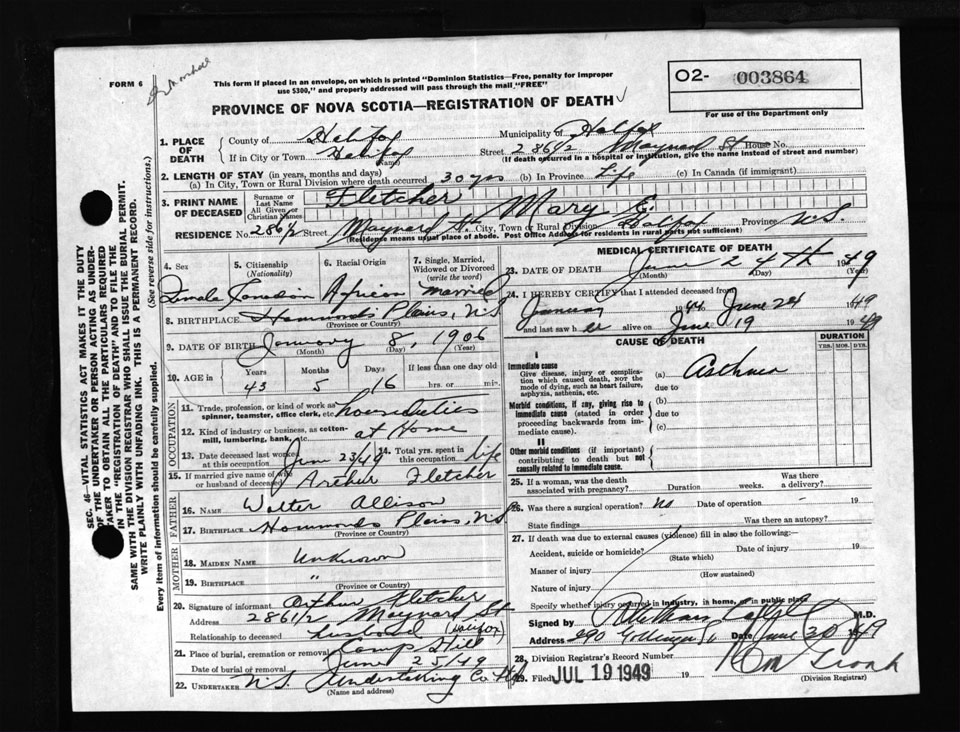 FORM 6
This form if placed in an envelope, on which is printed "Dominion Statistics—Free, penalty for improper
use $300," and properly addressed will pass through the mail "FREE"
O2- 003864
For use of the Department only
PROVINCE OF NOVA SCOTIA—REGISTRATION OF DEATH
1. PLACE OF DEATH
County of Halifax Municipality of Halifax
If in City or Town Halifax (Name) Street 286 1/2 Maynard St House No.
(If death occurred in a hospital or institution, give the name instead of street and number)
2. LENGTH OF STAY (in years, months and days)
(a) In City, Town or Rural Division where death occurred 30 yrs (b) In Province Life (c) In Canada (if immigrant)
3. PRINT NAME OF DECEASED
Surname or Last Name Fletcher
All Given or Christian Names Mary E.
RESIDENCE No. 286 1/2 Street Maynard St. City, Town or Rural Division Halifax Province N.S.
(Residence means usual place of abode. Post Office Address for residents in rural parts not sufficient)
4. Sex Female
5. Citizenship (Nationality) Canadian
6. Racial Origin African
7. Single, Married, Widowed or Divorced (write the word) married
8. BIRTHPLACE Hammonds Plains, N.S
(Province or Country)
9. DATE OF BIRTH January 8, 1906
(Month) (Day) (Year)
10. AGE in Years Months Days If less than one day old
43 5 16 hrs. or min.
OCCUPATION
11. Trade, profession, or kind of work as spinner, teamster, office clerk, etc. house duties
12. Kind of industry or business, as cotton-mill, lumbering, bank, etc. at Home
13. Date deceased last worked at this occupation June 23/49
14. Total yrs. spent in this occupation life
15. If married give name of wife or husband of deceased Arthur Fletcher
FATHER
16. NAME Walter Allison
17. BIRTHPLACE Hammonds Plains, N.S
(Province or Country)
MOTHER
18. MAIDEN NAME Unknown
19. BIRTHPLACE "
(Province or Country)
20. Signature of informant Arthur Fletcher
Address 286 1/2 Maynard St
Relationship to deceased husband (Halifax
21. Place of burial, cremation or removal Camp Hill
Date of burial or removal June 25/49
22. UNDERTAKER N.S. Undertaking Co Hfx
(Name and address)
MEDICAL CERTIFICATE OF DEATH
23. DATE OF DEATH June 24th 1949
(Month) (Day) (Year)
24. I HEREBY CERTIFY that I attended deceased from
January 1944 June 24 1949
and last saw her alive on June 19 1949
CAUSE OF DEATH
DURATION
YRS. MOS. DYS.
I
Immediate cause
Give disease, injury or complication which caused death, NOT the mode of dying, such as heart failure, asphyxia, asthenia, etc.
(a) Asthma
due to
Morbid conditions, if any, giving rise to immediate cause (stated in order proceeding backwards from immediate cause).
(b)
due to
(c)
II
Other morbid conditions (if important) contributing to death but not causally related to immediate cause.
25. If a woman, was the death associated with pregnancy? Duration weeks. Was there a delivery?
26. Was there a surgical operation? no Date of operation 19
State findings Was there an autopsy?
27. If death was due to external causes (violence) fill in also the following:
Accident, suicide or homicide? Date of injury 19
(State which)
Manner of injury
(How sustained)
Nature of injury
Specify whether injury occurred in industry, in home, or in public place
Signed by M.D.
Address 290 Date June 30 1949
28. Division Registrar's Record Number
29. Filed JUL 19 1949 19
(Division Registrar)
SEC. 46—VITAL STATISTICS ACT MAKES IT THE DUTY
OF THE UNDERTAKER OR PERSON ACTING AS UNDER-
TAKER TO OBTAIN ALL THE PARTICULARS REQUIRED
IN THE "REGISTRATION OF DEATH" AND TO FILE THE
SAME WITH THE DIVISION REGISTRAR WHO SHALL ISSUE THE BURIAL PERMIT.
WRITE PLAINLY WITH UNFADING INK. THIS IS A PERMANENT RECORD.
Every item of information should be carefully supplied. (See reverse side for instructions.)